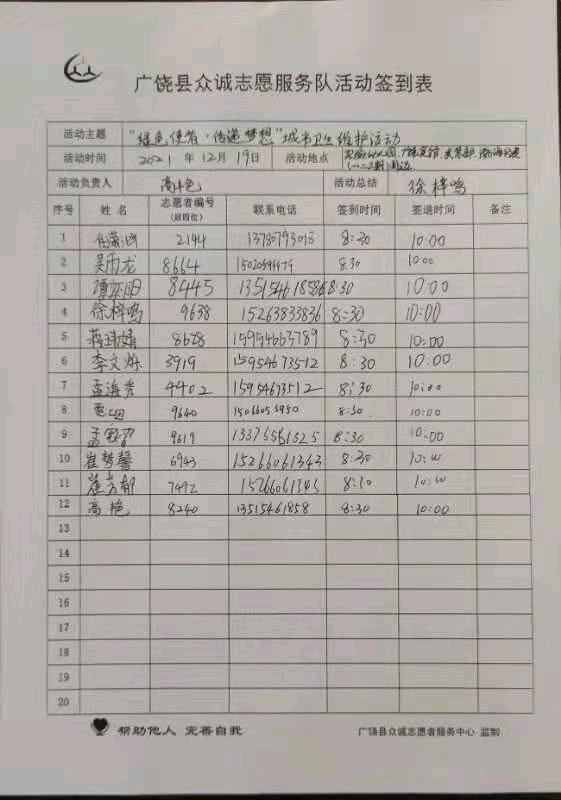 广饶县众诚志愿服务队活动签到表
活动主题 "绿色使者·传递梦想"城市卫生维护活动
活动时间 2021 年 12月 19日 活动地点
活动负责人 高艳 活动总结 徐梓鸣
序号 姓 名 志愿者编号 (后四位) 联系电话 签到时间 签退时间 备注
1 2194 8:30 10:00
2 吴雨龙 8664 8:30 10:00
3 8445 8:30 10:00
4 徐梓鸣 9638 15263833836 8:30 10:00
5 8628 15954663789 8:30 10:00
6 李文烁 3919 15954673512 8:30 10:00
7 4402 15954673512 8:30 10:00
8 9640 15066053950 8:30 10:00
9 9619 8:30 10:00
10 崔梦馨 6943 15266061343 8:30 10:00
11 7492 15266061343 8:30 10:00
12 高艳 8240 13515461858 8:30 10:00
13
14
15
16
17
18
19
20
帮助他人 完善自我 广饶县众诚志愿者服务中心 监制